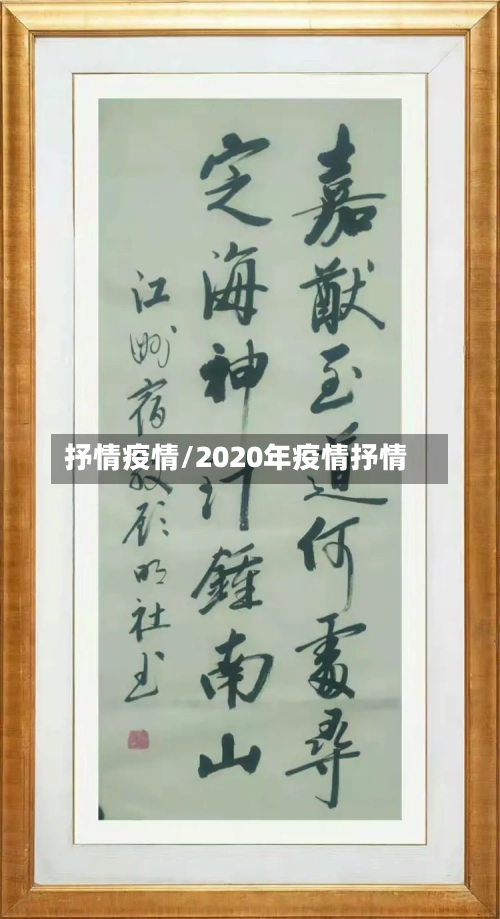 嘉猷至道何處尋
定海神针鍾南山
江 宿 顾明社书
抒情疫情/2020年疫情抒情